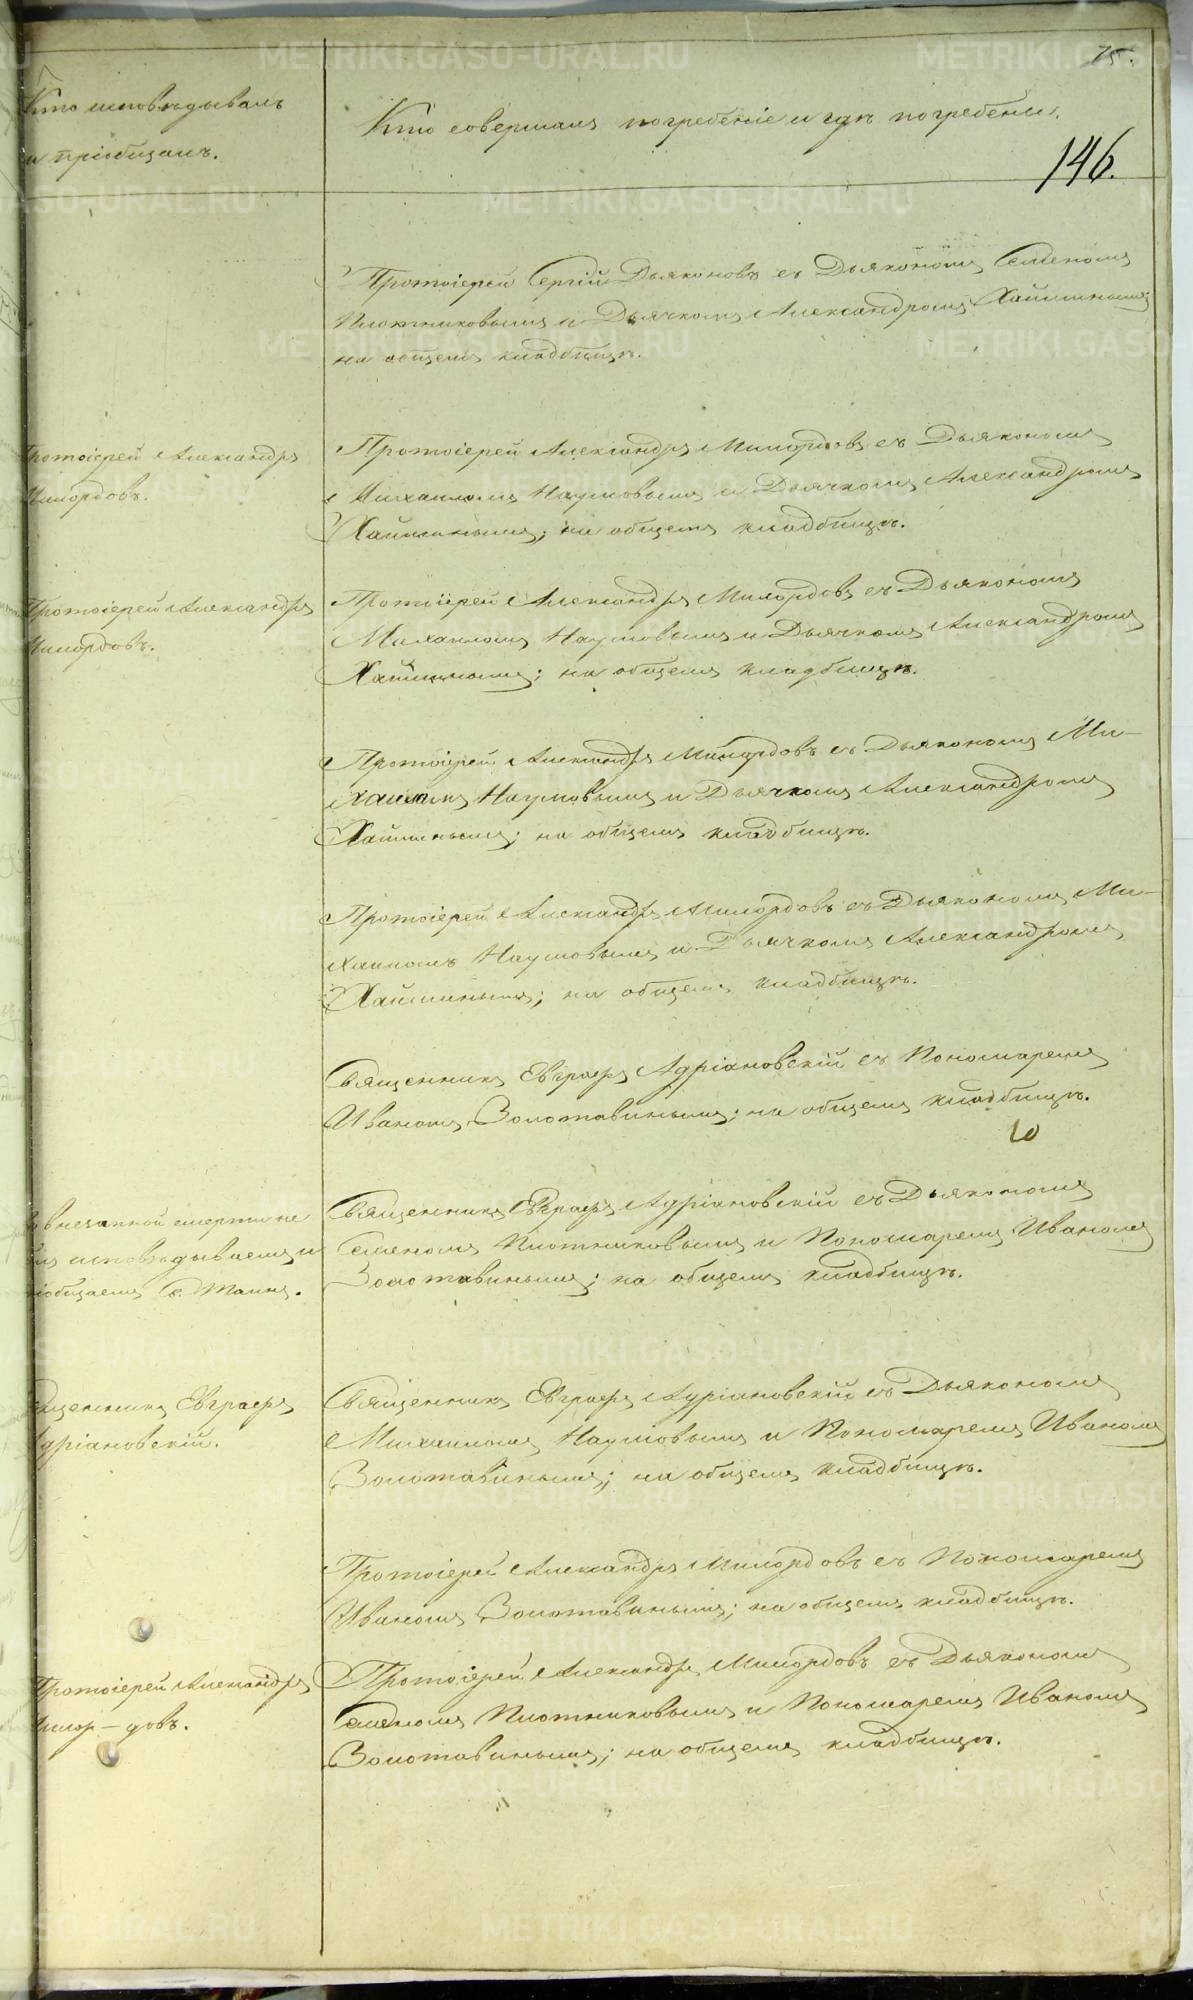 75.
Кто исповѣдывалъ
и пріобщалъ.
Кто совершалъ погребеніе и гдѣ погребены.
146.
Протоіерей Сергій Дьяконовъ съ Дьякономъ Семеномъ
Плотниковымъ и Дьячкомъ Александромъ Хайминымъ;
на общемъ кладбищѣ.
Протоіерей Александръ
Милордовъ.
Протоіерей Александръ Милордовъ съ Дьякономъ
Михаиломъ Наумовымъ и Дьячкомъ Александромъ
Хайминымъ; на общемъ кладбищѣ.
Протоіерей Александръ
Милордовъ.
Протоіерей Александръ Милордовъ съ Дьякономъ
Михаиломъ Наумовымъ и Дьячкомъ Александромъ
Хайминымъ; на общемъ кладбищѣ.
Протоіерей Александръ Милордовъ съ Дьякономъ Ми-
хаиломъ Наумовымъ и Дьячкомъ Александромъ
Хайминымъ; на общемъ кладбищѣ.
Протоіерей Александръ Милордовъ съ Дьякономъ Ми-
хаиломъ Наумовымъ и Дьячкомъ Александромъ
Хайминымъ; на общемъ кладбищѣ.
Священникъ Евграфъ Адріановскій съ Пономаремъ
Иваномъ Золотавинымъ; на общемъ кладбищѣ.
10
внезапной смерти не
исповѣдываемъ и
пріобщаемъ С. Таинъ.
Священникъ Евграфъ Адріановскій съ Дьякономъ
Семеномъ Плотниковымъ и Пономаремъ Иваномъ
Золотавинымъ; на общемъ кладбищѣ.
Священникъ Евграфъ
Адріановскій.
Священникъ Евграфъ Адріановскій съ Дьякономъ
Михаиломъ Наумовымъ и Пономаремъ Иваномъ
Золотавинымъ; на общемъ кладбищѣ.
Протоіерей Александръ Милордовъ съ Пономаремъ
Иваномъ Золотавинымъ; на общемъ кладбищѣ.
Протоіерей Александръ
Милор-довъ.
Протоіерей Александръ Милордовъ съ Дьякономъ
Семеномъ Плотниковымъ и Пономаремъ Иваномъ
Золотавинымъ; на общемъ кладбищѣ.
METRIKI.GASO-URAL.RU